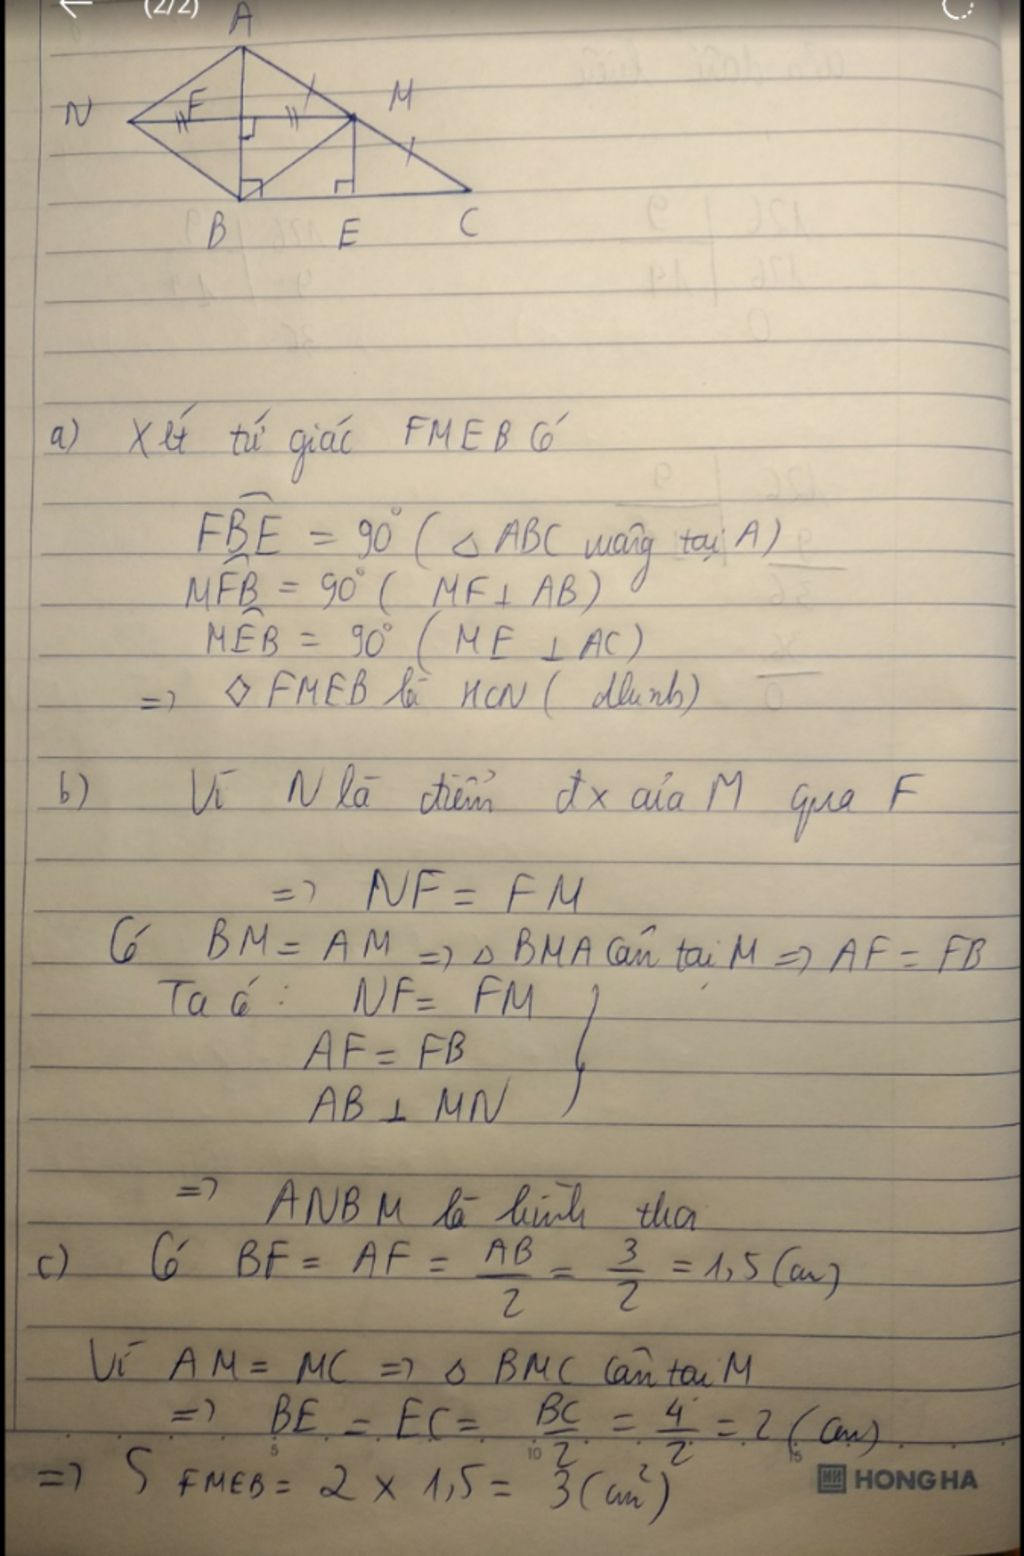 (2/2)
A
N F M
B E C
a) Xét tứ giác FMEB có
FBE = 90° ( △ ABC vuông tại A)
MFB = 90° ( MF ⊥ AB)
MEB = 90° ( ME ⊥ AC)
=> ◇ FMEB là HCN ( dhnb)
b) Vì N là điểm đx của M qua F
=> NF = FM
Có BM = AM => △ BMA cân tại M => AF = FB
Ta có : NF = FM
AF = FB
AB ⊥ MN
=> ANBM là hình thoi
c) Có BF = AF = AB/2 = 3/2 = 1,5 (cm)
Vì AM = MC => △ BMC cân tại M
=> BE = EC = BC/2 = 4/2 = 2 ( cm)
5 10 15
=> S FMEB = 2 x 1,5 = 3 (cm²)
HONG HA